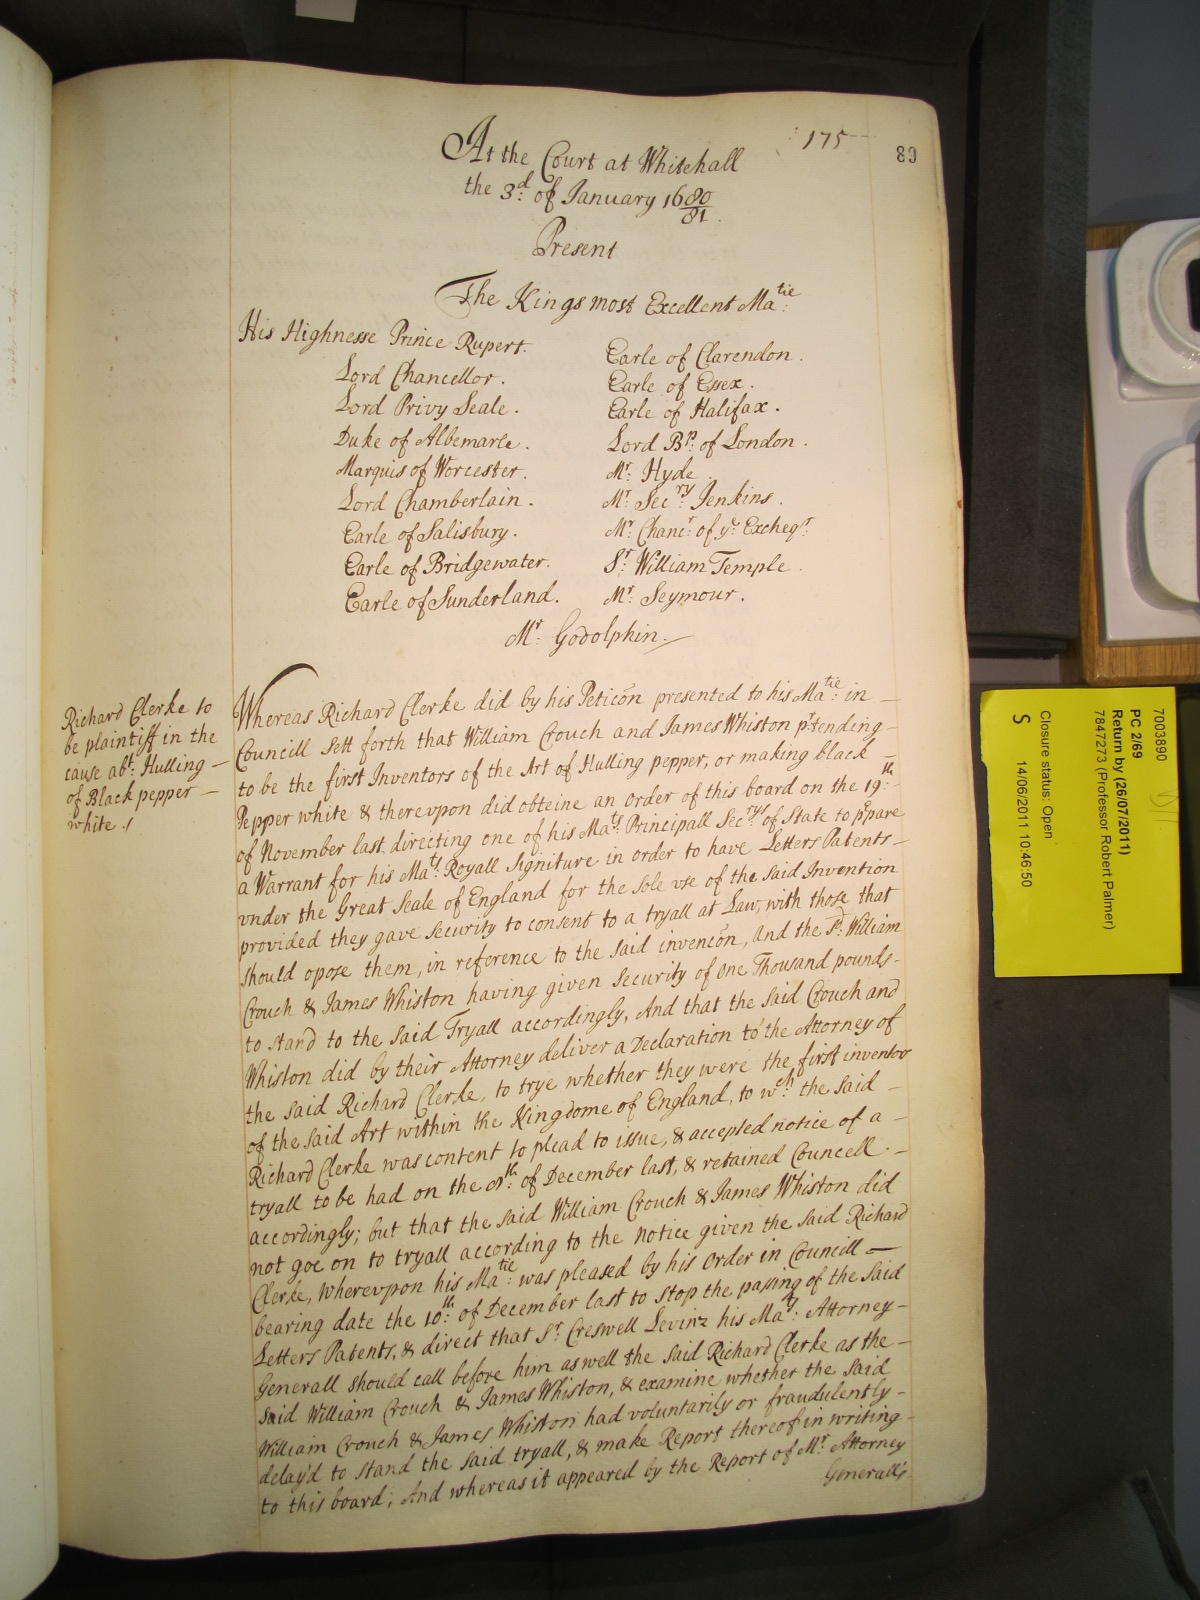 175
89
At the Court at Whitehall
the 3d: of January 1680/81.
Present
The Kings most Excellent Matie:
His Highnesse Prince Rupert.
Lord Chancellor.
Lord Privy Seale.
Duke of Albemarle.
Marquis of Worcester.
Lord Chamberlain.
Earle of Salisbury.
Earle of Bridgewater.
Earle of Sunderland.
Earle of Clarendon.
Earle of Essex.
Earle of Halifax.
Lord Bp: of London.
Mr: Hyde
Mr: Secry: Jenkins.
Mr: Chancr: of ye: Excheqr:
Sr: William Temple.
Mr: Seymour.
Mr: Godolphin.
Richard Clerke to
be plaintiff in the
cause abt: Hulling
of Black pepper
white ./
Whereas Richard Clerke did by his Peticōn presented to his Matie: in
Councill sett forth that William Crouch and James Whiston prtending
to be the first Inventors of the Art of Hulling pepper, or making black
Pepper white & therevpon did obteine an order of this board on the 19th:
of November last, directing one of his Mats: Principall Secrys: of State to prpare
a Warrant for his Mats: Royall Signiture in order to have Letters Patents
vnder the Great Seale of England for the sole vse of the said Invention
provided they gave Security to consent to a tryall at Law, with those that
should opose them, in reference to the said invencōn, And the sd: William
Crouch & James Whiston having given Security of one Thousand pounds
to stand to the said Tryall accordingly, And that the said Crouch and
Whiston did by their Attorney deliver a Declaration to the Attorney of
the said Richard Clerke, to trye whether they were the first inventor
of the said Art within the Kingdome of England, to wch: the said
Richard Clerke was content to plead to issue, & accepted notice of a
tryall to be had on the th: of December last, & retained Councell
accordingly; but that the said William Crouch & James Whiston did
not goe on to tryall according to the notice given the said Richard
Clerke, wherevpon his Matie: was pleased by his Order in Councill
bearing date the 10th: of December last to stop the passing of the said
Letters Patents, & direct that Sr: Creswell Levinz his Mats: Attorney
Generall should call before him as well the said Richard Clerke as the
said William Crouch & James Whiston, & examine whether the said
William Crouch & James Whiston had voluntarily or fraudulently
delay'd to stand the said tryall, & make Report thereof in writing
to this board; And whereas it appeared by the Report of Mr: Attorney
Generall's
7003890
PC 2/69
Return by (26/07/2011)
7847273 (Professor Robert Palmer)
Closure status: Open
S 14/06/2011 10:46:50